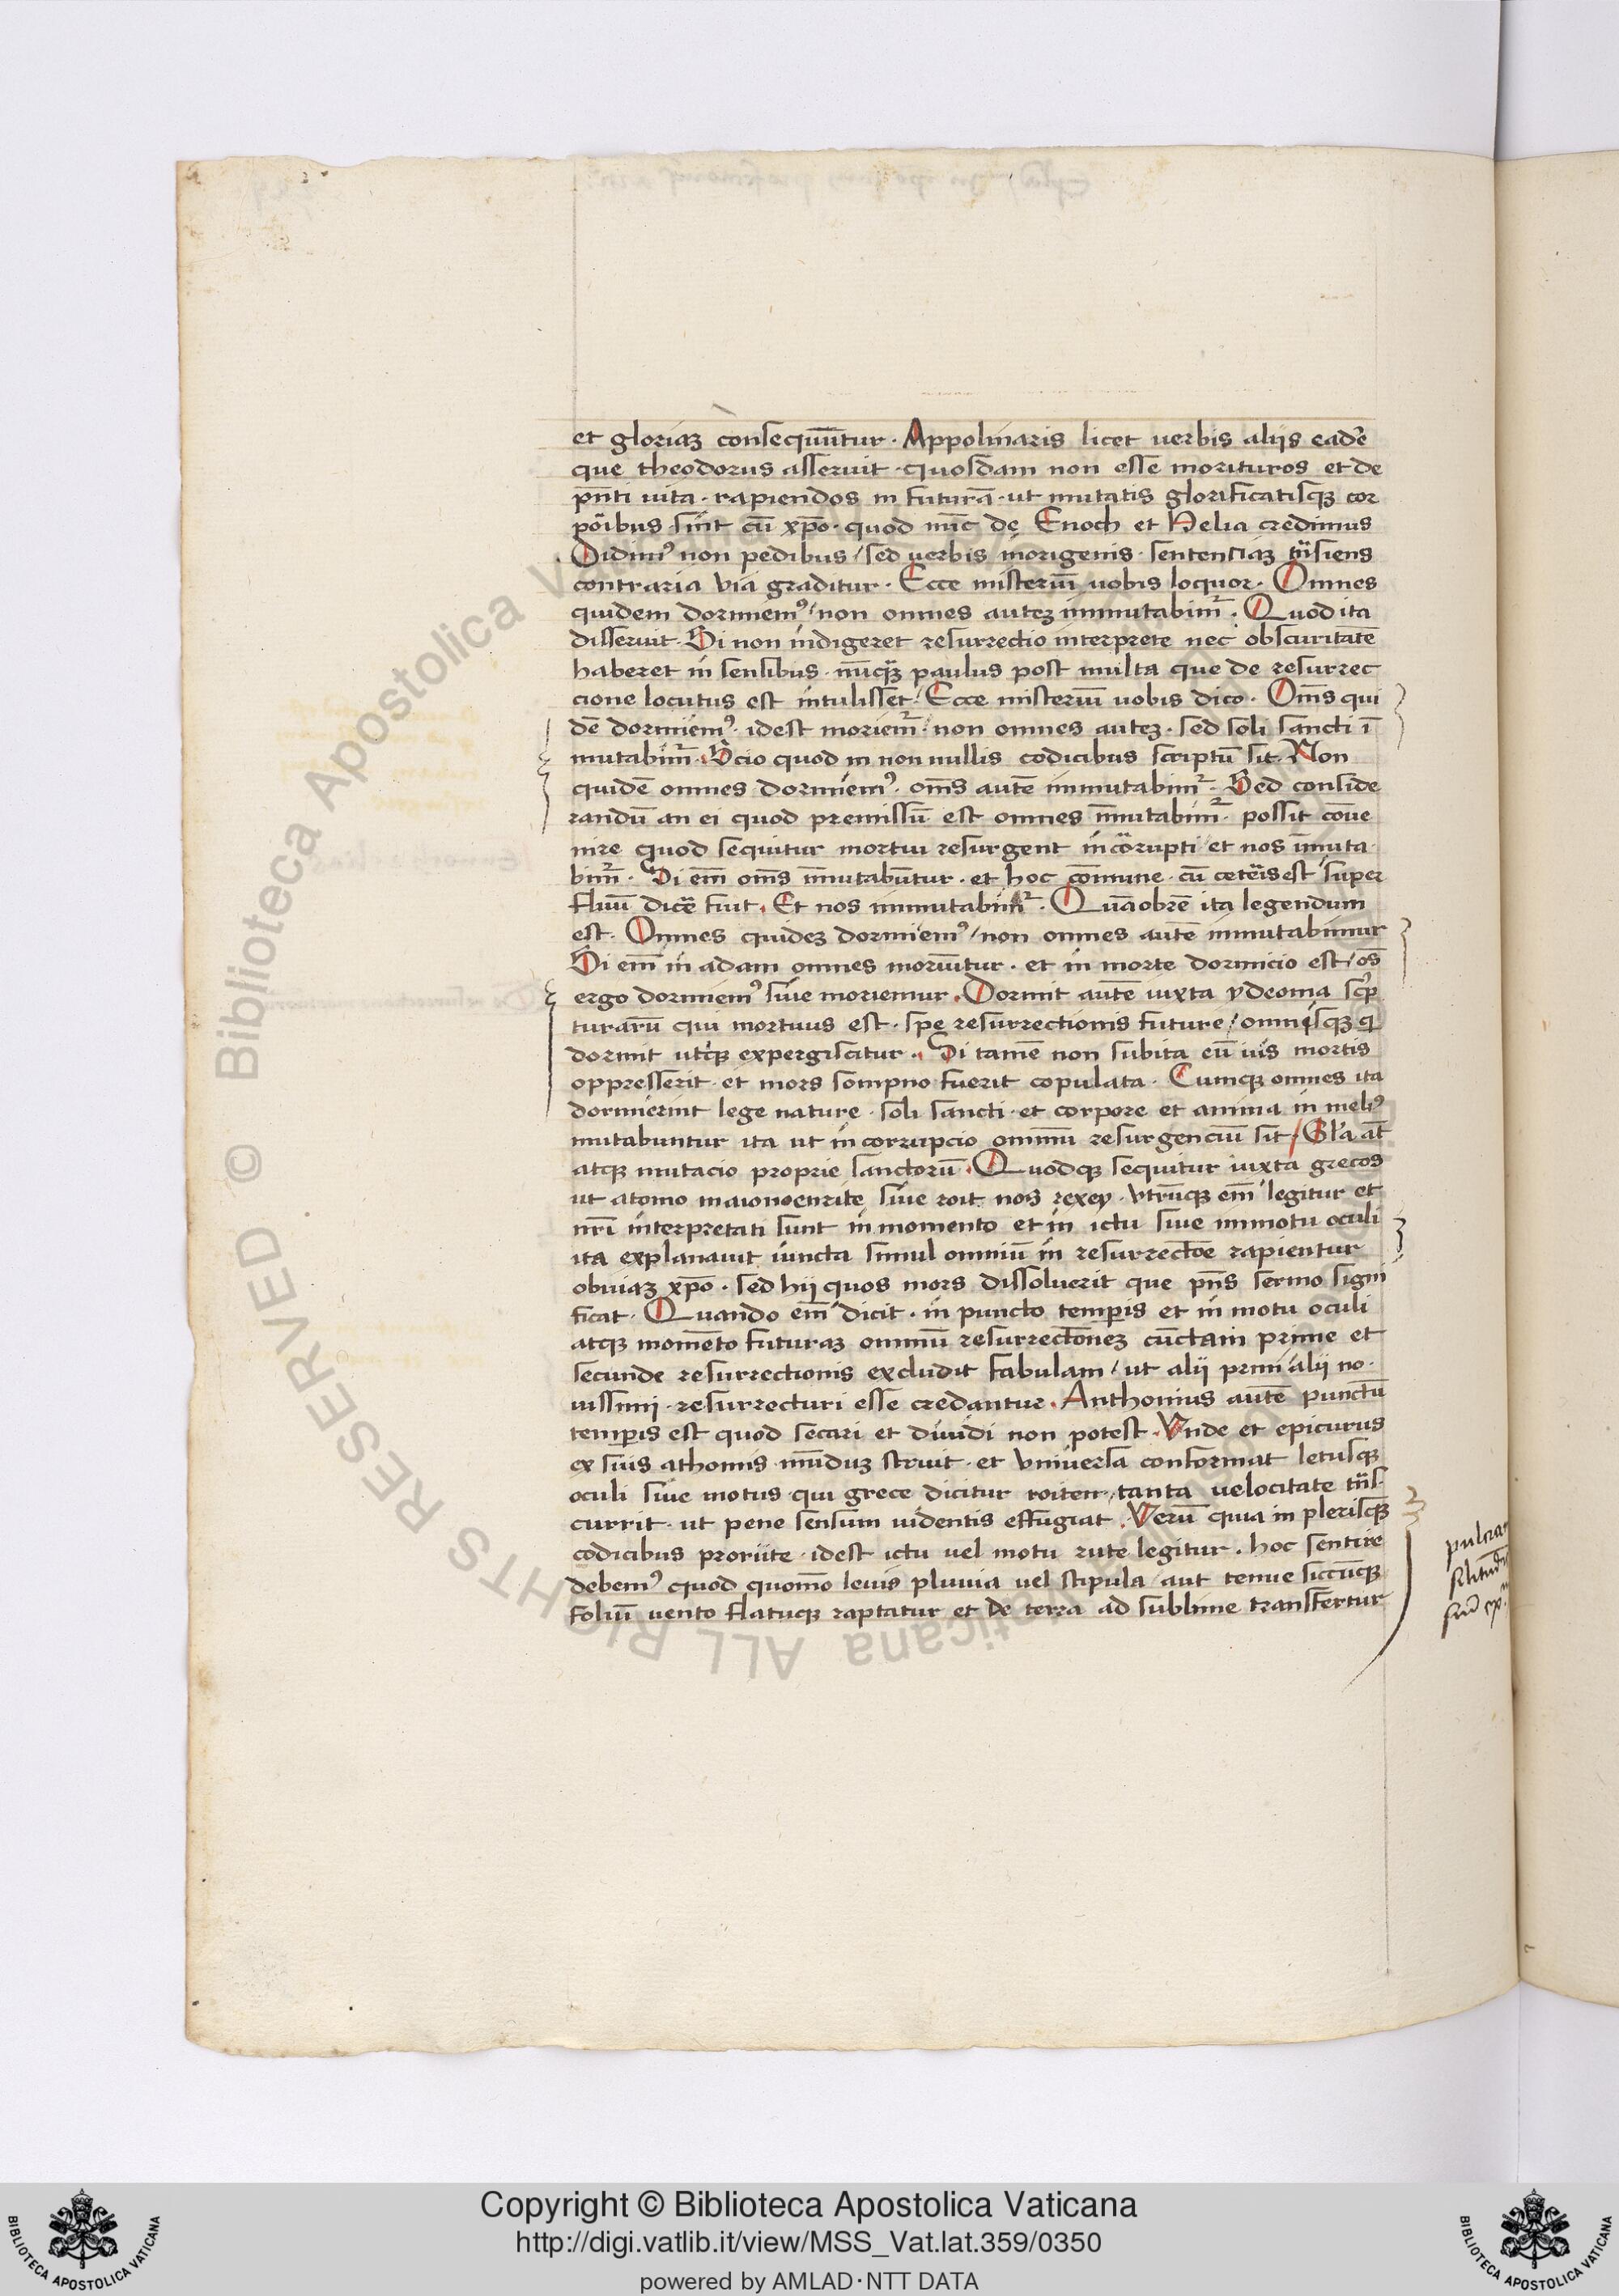 et gloriaz consequūtur · Appolinaris licet uerbis aliis eadē
que theodorus asseruit · quosdam non esse morituros et de
pñti uita · rapiendos in futurā · ut mutatis glorificatisqꝫ cor
poribus sint cū xp̄o · quod nūc de Enoch et Helia credimus
Didimꝰ non pedibus / sed uerbis in origenis · sententiaz trāsiens
contraria via graditur · Ecce misteriū uobis loquor · Omnes
quidem dormiemꝰ / non omnes autez immutabimr̄ · Quod ita
disseruit · Si non indigeret resurrectio interprete nec obscuritatē
haberet in sensibus · nūcq̄ꝫ paulus post multa que de resurrec
cione locutus est intulisset / Ecce misteriū uobis dico · Om̄s qui
dē dormiemꝰ · idest moriemr̄ / non omnes autez · sed soli sancti ī
mutabimr̄ · Scio quod in non nullis codicibus scriptū sit · Non
quidē omnes dormiemꝰ · om̄s autē immutabimr̄ · Sed conside
randū an ei quod premissū est omnes īmutabimr̄ · possit cōue
nire quod sequitur mortui resurgent incorrupti et nos īmuta
bimr̄ · Si em̄ om̄s īmutabūtur · et hoc cōmune · cū ceteris est super
fluū dicē fuit · Et nos immutabimr̄ · Quāobrē ita legendum
est · Omnes quidez dormiemꝰ / non omnes autē immutabimur
Si em̄ in adam omnes moriūtur · et in morte dormicio est / om̄s
ergo dormiemꝰ siue moriemur · Dormit autē iuxta ydeoma scrip
turarū qui mortuus est · spe resurrectionis future / omnisqꝫ qi
dormit utiqꝫ expergiscitur · Si tamē non subita eū uis mortis
oppresserit · et mors sompno fuerit copulata · Cumqꝫ omnes ita
dormierint lege nature · soli sancti · et corpore et anima in meliꝰ
mutabuntur ita ut incorrupcio omniū resurgenciū sit / Glīa at̄
atqꝫ mutacio proprie sanctorū · Quodqꝫ sequitur iuxta grecos
ut atomo maionoenrite siue roit nos rexey · vtrūqꝫ em̄ legitur et
nr̄i interpretati sunt in momento et in ictu siue in motu oculi
ita explanauit iuncta simul omniū in resurrectōe rapientur
obuiaz xp̄o · sed hij quos mors dissoluerit que pn̄s sermo signi
ficat · Quando em̄ dicit · in puncto temp̄is et in motu oculi
atqꝫ momēto futuraz omniū resurrectōnez cūctam prime et
secunde resurrectionis excludit fabulam / ut alii primi alii no ·
uissimi · resurrecturi esse credantur · Anthonius autē punctū
temp̄is est quod secari et diuidi non potest · Vnde et epicurus
ex suis athomis mūduz struit · et vniuersa conformat Ictusqꝫ
oculi siue motus qui grece dicitur roiten / tanta uelocitate trās ·
currit · ut pene sensum uidentis effugiat · Verū quia in plerisqꝫ
codicibus proriite · idest ictu uel motu rute legitur · hoc sentire
debemꝰ quod quomō leuis pluuia uel stipula / aut tenue siccūqꝫ
foliū uento flatuqꝫ raptatur et de terra ad sublime transfertur
pulcra
Copyright © Biblioteca Apostolica Vaticana
http://digi.vatlib.it/view/MSS_Vat.lat.359/0350
powered by AMLAD·NTT DATA
BIBLIOTECA APOSTOLICA VATICANA
BIBLIOTECA APOSTOLICA VATICANA